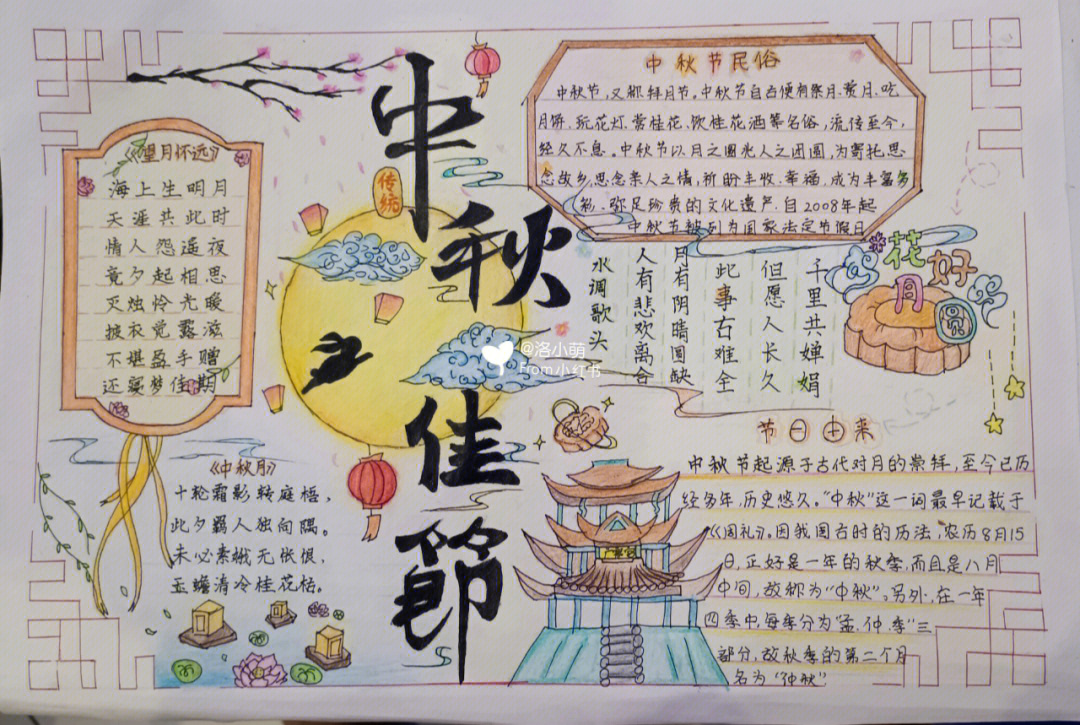 中秋佳節
传统
《望月怀远》
海上生明月
天涯共此时
情人怨遥夜
竟夕起相思
灭烛怜光暖
披衣觉露滋
不堪盈手赠
还寝梦佳期
《中秋月》
十轮霜影转庭梧，
此夕羁人独向隅。
未必素娥无怅恨，
玉蟾清冷桂花悟。
中秋节民俗
中秋节，又称拜月节。中秋节自古便有祭月、赏月、吃
月饼、玩花灯、赏桂花、饮桂花酒等名俗，流传至今，
经久不息。中秋节以月之圆兆人之团圆，为寄托思
念故乡，思念亲人之情，祈盼丰收、幸福，成为丰富多
彩、弥足珍贵的文化遗产。自2008年起
中秋节被列为国家法定节假日
千里共婵娟
但愿人长久
此事古难全
月有阴晴圆缺
人有悲欢离合
水调歌头
花好
月
圆
@洛小萌
From小红书
节日由来
中秋节起源于古代对月的崇拜，至今已历
经多年，历史悠久。“中秋”这一词最早记载于
《周礼》，因我国古时的历法，农历8月15
日，正好是一年的秋季，而且是八月
中间，故称为“中秋”。另外，在一年
四季中，每季分为“孟、仲、季”三
部分，故秋季的第二个月
名为“仲秋”
广寒宫